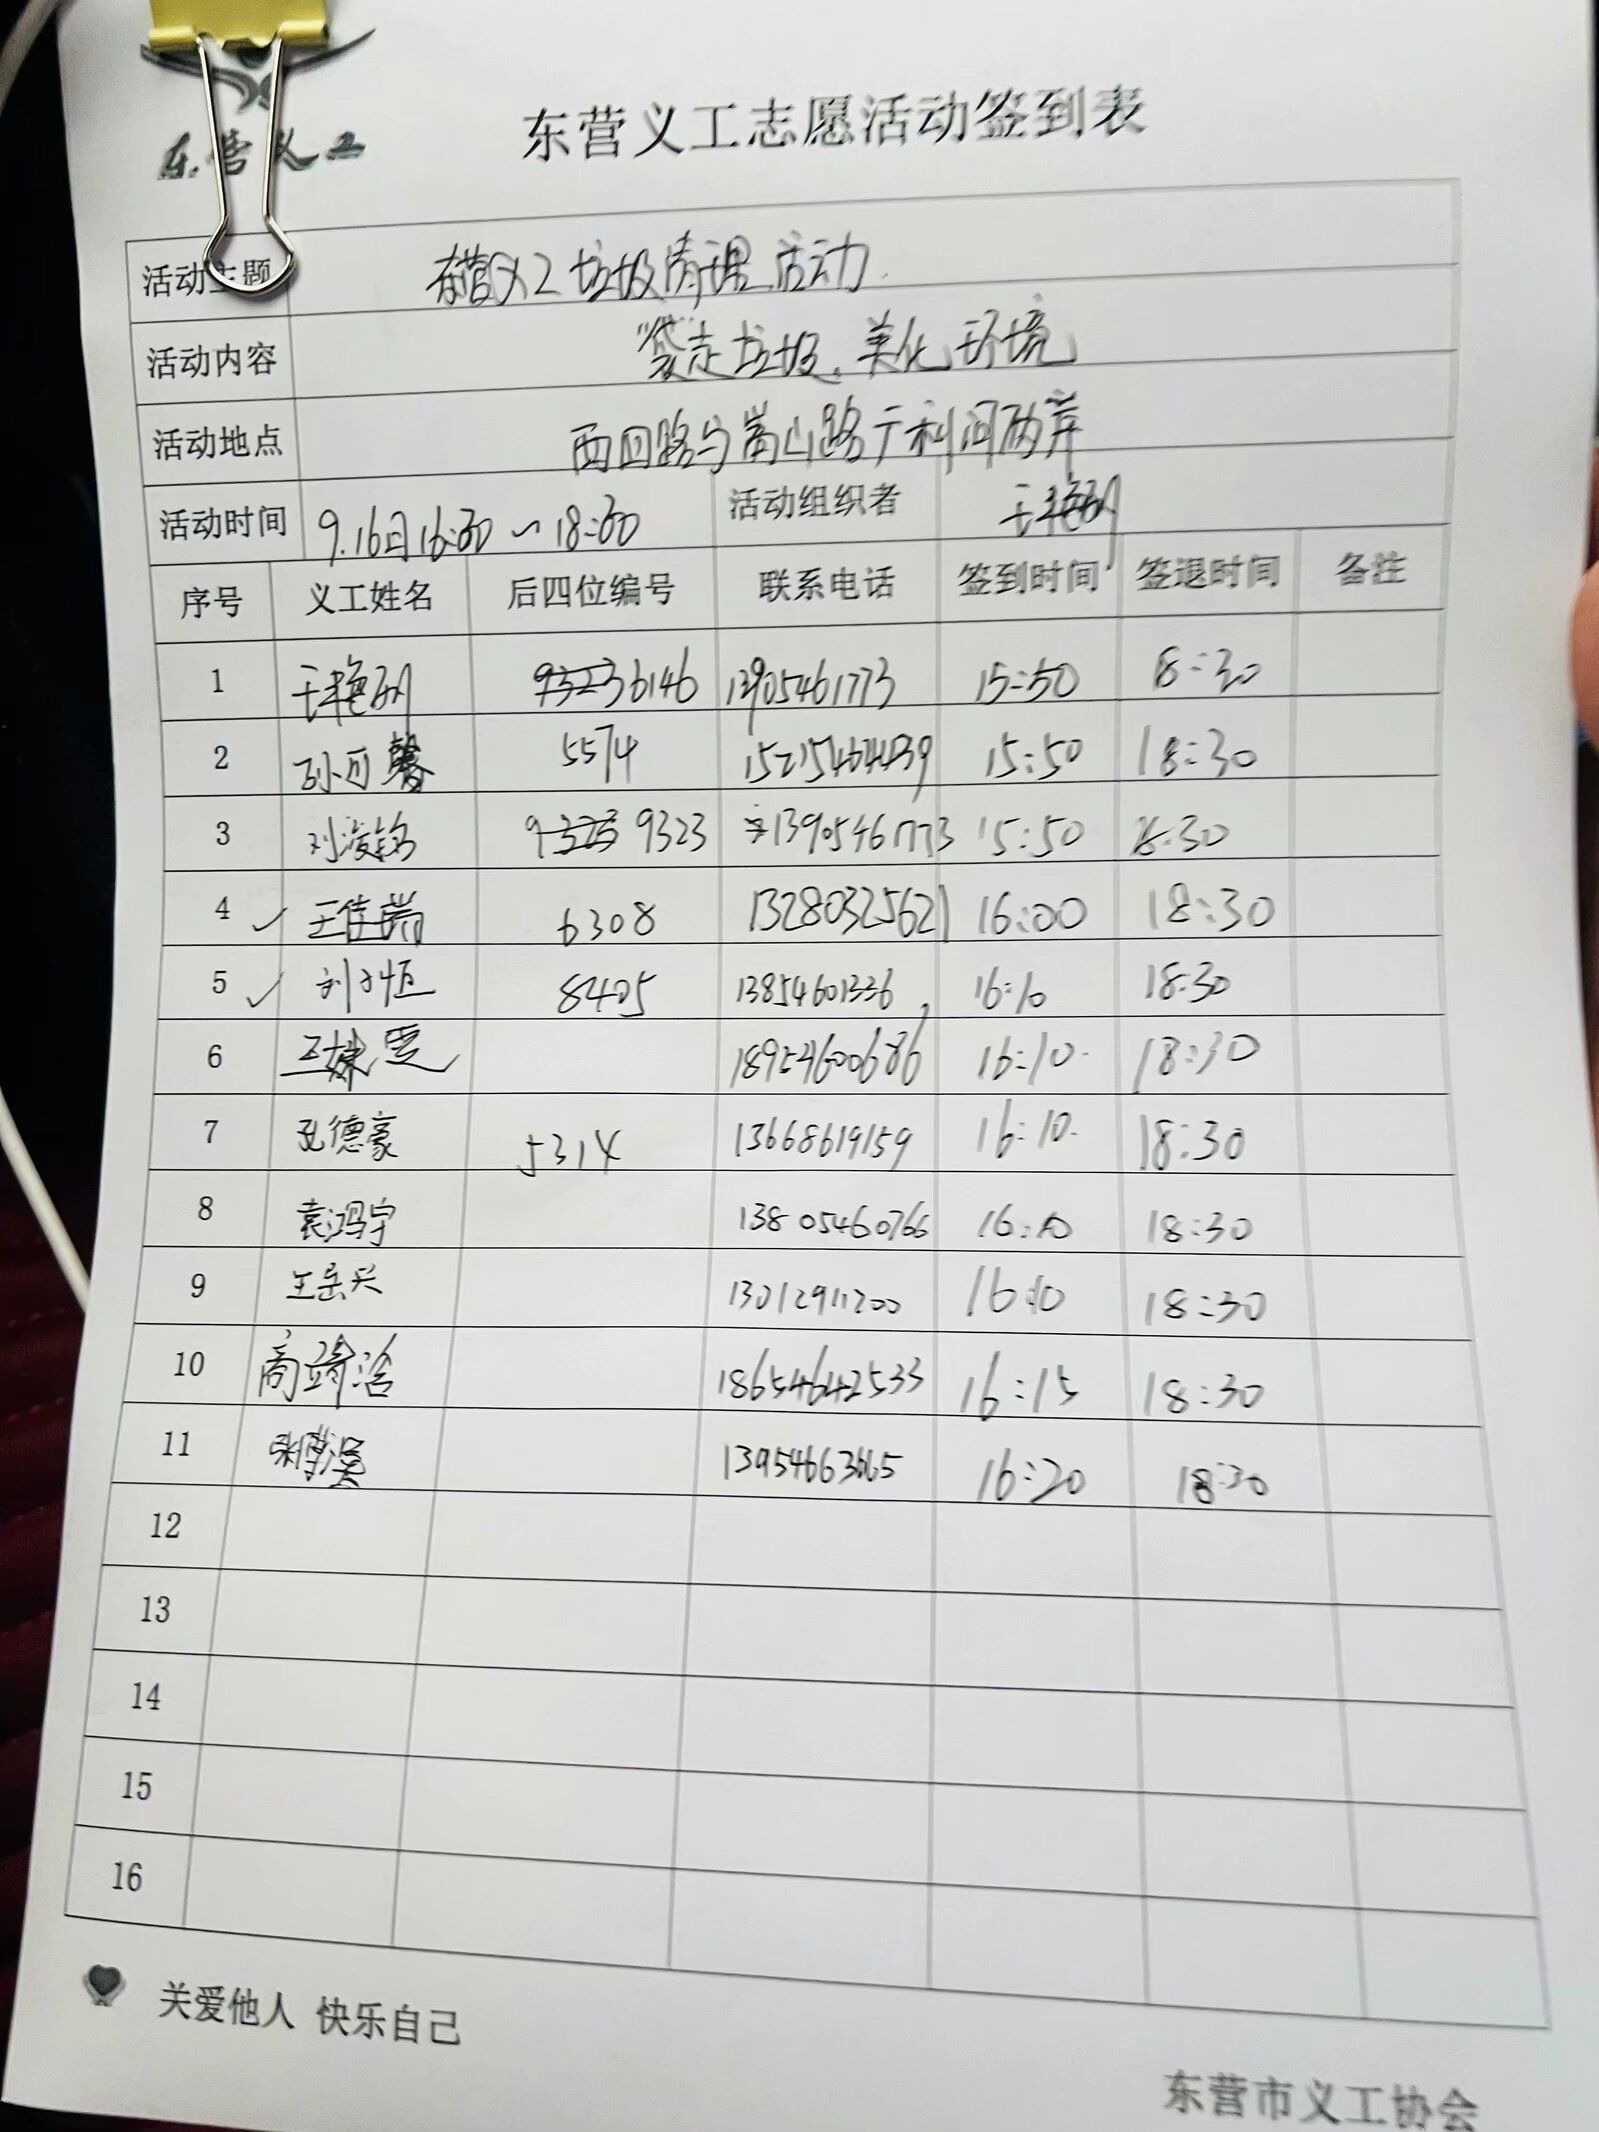 东营义工
东营义工志愿活动签到表
活动主题 东营义工垃圾清理活动
活动内容 "袋"走垃圾、美化环境
活动地点 西四路与嵩山路广利河两岸
活动时间 9.16日16:30～18:30 活动组织者
序号 义工姓名 后四位编号 联系电话 签到时间 签退时间 备注
1 6146 13905461773 15:50 18:30
2 孙可馨 5574 15:50 18:30
3 刘浚铭 9323 13905461773 15:50 18:30
4 王佳尚 6308 13280325621 16:00 18:30
5 刘子恒 8405 13854601336 16:10 18:30
6 18954600686 16:10 18:30
7 孔德豪 5314 13668619159 16:10 18:30
8 袁鸿宇 13805460766 16:10 18:30
9 王岳兴 13012911200 16:10 18:30
10 商靖涵 18654642533 16:15 18:30
11 16:20 18:30
12
13
14
15
16
关爱他人 快乐自己
东营市义工协会